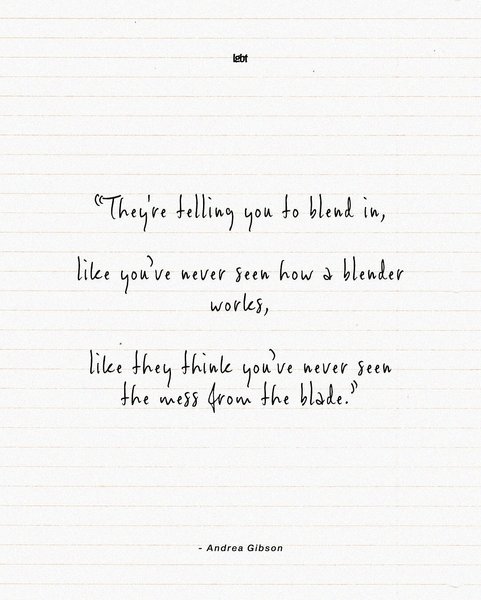 "They're telling you to blend in,
like you've never seen how a blender
works,
like they think you've never seen
the mess from the blade."
- Andrea Gibson